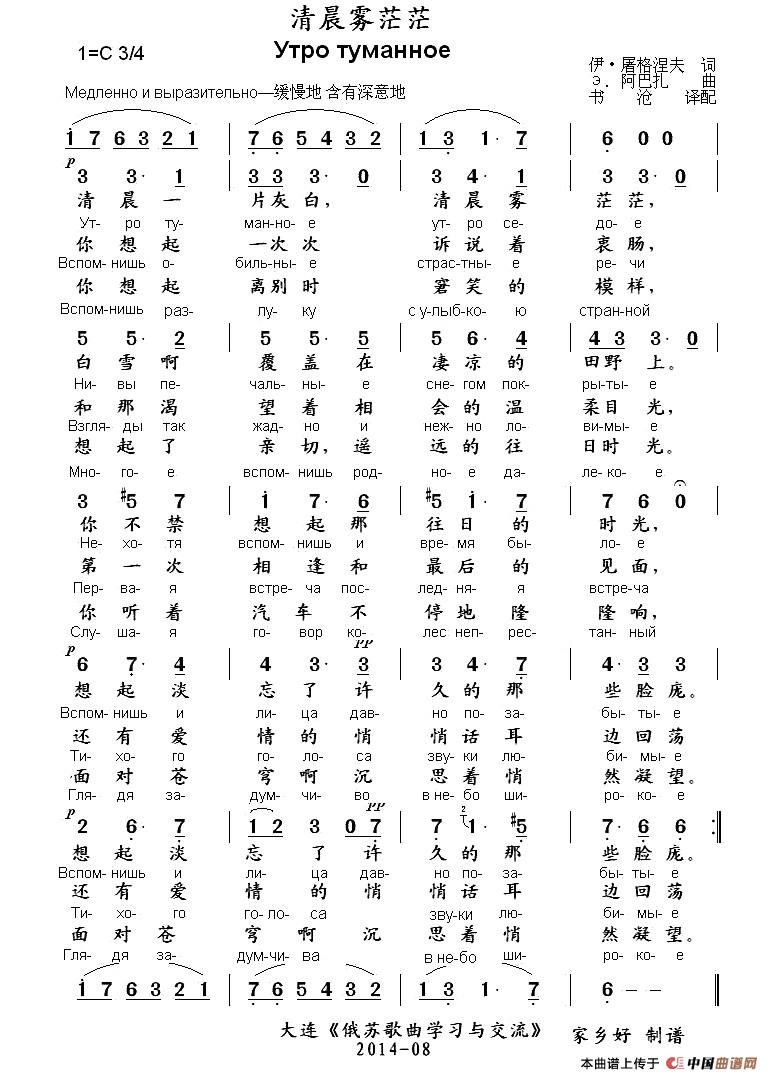 清晨雾茫茫
Утро туманное
1=C 3/4
伊·屠格涅夫 词
Э. 阿巴扎 曲
书沧 译配
Медленно и выразительно—缓慢地 含有深意地
1 7 6 3 2 1 | 7 6 5 4 3 2 | 1 3 1· 7 | 6 0 0
p
3 3· 1 | 3 3 3· 0 | 3 4· 1 | 3 3· 0
清 晨 一 片灰白， 清 晨 雾 茫 茫，
Ут- ро ту- ман-но- е ут- ро се- до- е
你 想 起 一次次 诉 说 着 衷 肠，
Вспом-нишь о- биль-ны- е страст-ны- е ре- чи
你 想 起 离 别 时 窘 笑 的 模 样，
Вспом-нишь раз- лу- ку с у-лыб-ко- ю стран-ной
5 5· 2 | 5 5· 5 | 5 6· 4 | 4 3 3· 0
白 雪 啊 覆 盖 在 凄 凉 的 田 野 上。
Ни- вы пе- чаль- ны- е сне- гом пок- ры-ты- е
和 那 渴 望 着 相 会 的 温 柔 目 光，
Взгля- ды так жад- но и неж-но ло- ви-мы- е
想 起 了 亲 切，遥 远 的 往 日 时 光。
Мно- го- е вспом-нишь род- но- е да- ле- ко- е
3 #5 7 | 1 7· 6 | #5 1· 7 | 7 6 0
你 不 禁 想 起 那 往 日 的 时 光，
Не- хо- тя вспом-нишь и вре- мя бы- ло- е
第 一 次 相 逢 和 最 后 的 见 面，
Пер- ва- я встре- ча пос- лед- ня- я встре-ча
你 听 着 汽 车 不 停 地 隆 隆 响，
Слу- ша- я го- вор ко- лес неп-рес- тан- ный
p pp
6 7· 4 | 4 3· 3 | 3 4· 7 | 4· 3 3
想 起 淡 忘 了 许 久 的 那 些 脸 庞。
Вспом-нишь и ли- ца дав- но по- за- бы- ты- е
还 有 爱 情 的 悄 悄 话 耳 边 回 荡
Ти- хо- го го- ло- са зву- ки лю- би- мы- е
面 对 苍 穹 啊 沉 思 着 悄 然 凝 望。
Гля- дя за- дум- чи- во в не- бо ши- ро- ко- е
p pp
2 6· 7 | 1 2 3 0 7 | 7 1· #5 | 7· 6 6 :||
想 起 淡 忘 了 许 久 的 那 些 脸 庞。
Вспом- нишь и ли- ца дав- но по- за- бы- ты- е
还 有 爱 情 的 悄 悄 话 耳 边 回 荡
Ти- хо- го го- ло- са зву- ки лю- би- мы- е
面 对 苍 穹 啊 沉 思 着 悄 然 凝 望。
Гля- дя за- дум-чи- ва в не-бо ши- ро- ко- е
1 7 6 3 2 1 | 7 6 5 4 3 2 | 1 3 1· 7 | 6 – –
大连《俄苏歌曲学习与交流》 家乡好 制谱
2014-08
本曲谱上传于 中国曲谱网